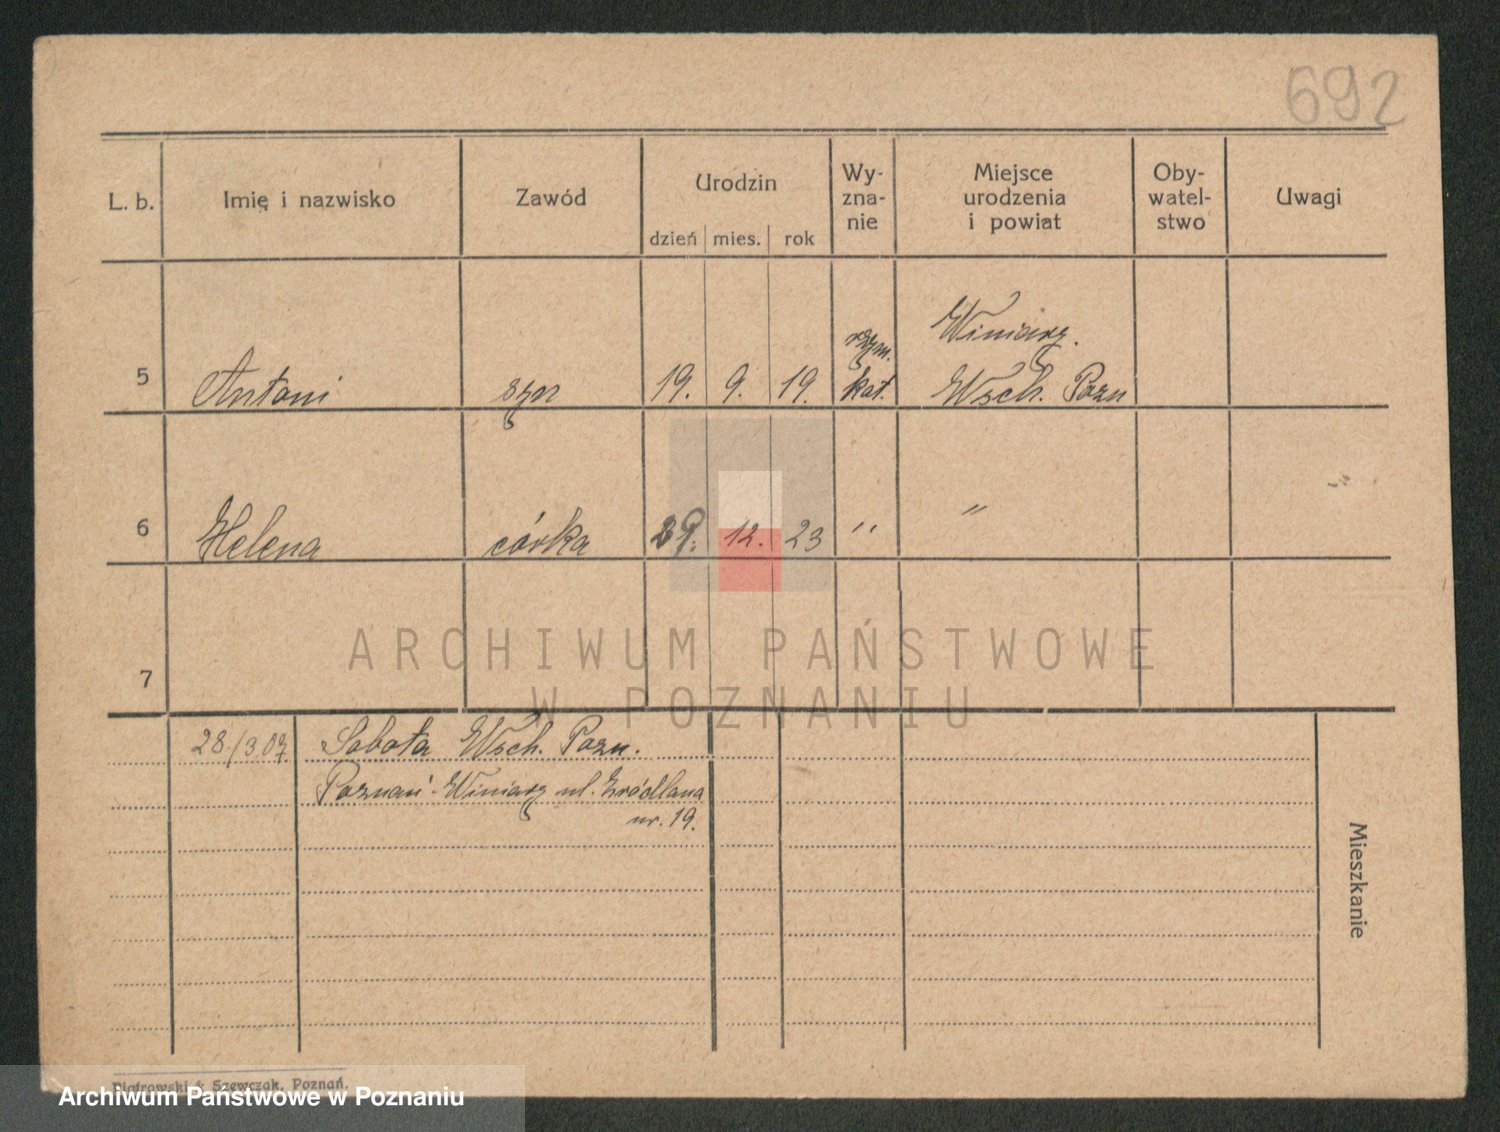 692
L. b. Imię i nazwisko Zawód Urodzin dzień mies. rok Wy- zna- nie Miejsce urodzenia i powiat Oby- watel- stwo Uwagi
Winiary.
rzym.
5 Antoni syn 19. 9. 19. kat. Wsch. Pozn
6 Helena córka 29. 12. 23 " "
ARCHIWUM PAŃSTWOWE
7
W POZNANIU
28./3.07 Sobota Wsch. Pozn.
Poznań-Winiary ul. Źródlana
nr. 19.
Mieszkanie
Piotrowski & Szewczak, Poznań.
Archiwum Państwowe w Poznaniu